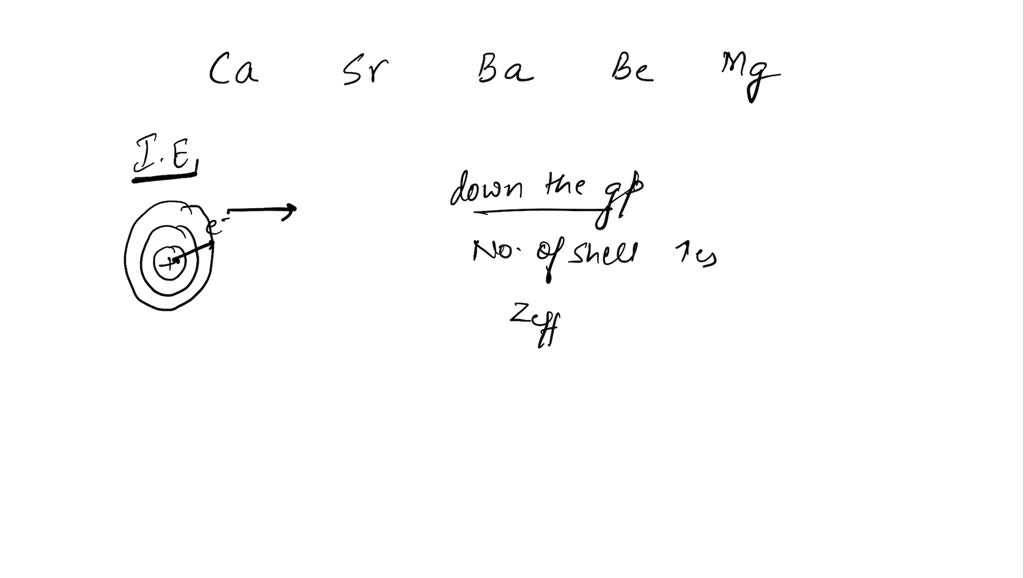 Ca Sr Ba Be Mg
I.E,
down the gp
e-
+
No. of shell ↑es
Zeff